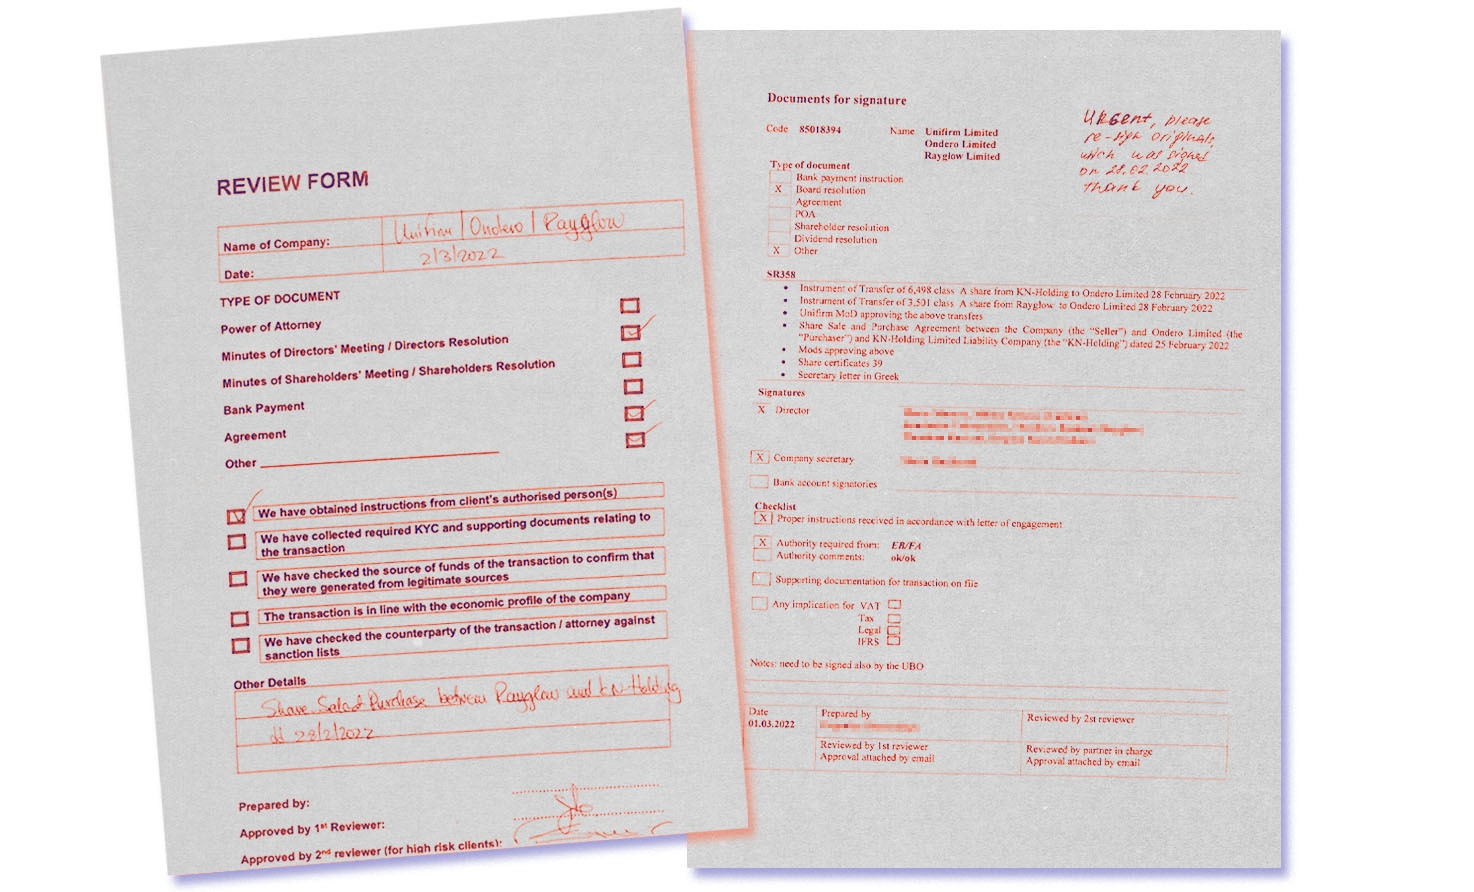 REVIEW FORM
Name of Company: Unifirm | Ondero | Rayglow
Date: 2/3/2022
TYPE OF DOCUMENT
Power of Attorney
Minutes of Directors' Meeting / Directors Resolution
Minutes of Shareholders' Meeting / Shareholders Resolution
Bank Payment
Agreement
Other
We have obtained instructions from client's authorised person(s)
We have collected required KYC and supporting documents relating to
the transaction
We have checked the source of funds of the transaction to confirm that
they were generated from legitimate sources
The transaction is in line with the economic profile of the company
We have checked the counterparty of the transaction / attorney against
sanction lists
Other Details
Share Sale & Purchase between Rayglow and KN-Holding
dd 28/2/2022
Prepared by:
Approved by 1st Reviewer:
Approved by 2nd reviewer (for high risk clients):
Documents for signature
URGENT, please
re-sign originals,
which was signed
on 28.02.2022
thank you.
Code 85018394 Name Unifirm Limited
Ondero Limited
Rayglow Limited
Type of document
Bank payment instruction
X Board resolution
Agreement
POA
Shareholder resolution
Dividend resolution
X Other
SR358
• Instrument of Transfer of 6,498 class A share from KN-Holding to Ondero Limited 28 February 2022
• Instrument of Transfer of 3,501 class A share from Rayglow to Ondero Limited 28 February 2022
• Unifirm MoD approving the above transfers
• Share Sale and Purchase Agreement between the Company (the "Seller") and Ondero Limited (the
"Purchaser") and KN-Holding Limited Liability Company (the "KN-Holding") dated 25 February 2022
• Mods approving above
• Share certificates 39
• Secretary letter in Greek
Signatures
X Director
X Company secretary
Bank account signatories
Checklist
X Proper instructions received in accordance with letter of engagement
X Authority required from: EB/FA
Authority comments: ok/ok
Supporting documentation for transaction on file
Any implication for VAT
Tax
Legal
IFRS
Notes: need to be signed also by the UBO
Date
01.03.2022
Prepared by
Reviewed by 2nd reviewer
Reviewed by 1st reviewer
Approval attached by email
Reviewed by partner in charge
Approval attached by email